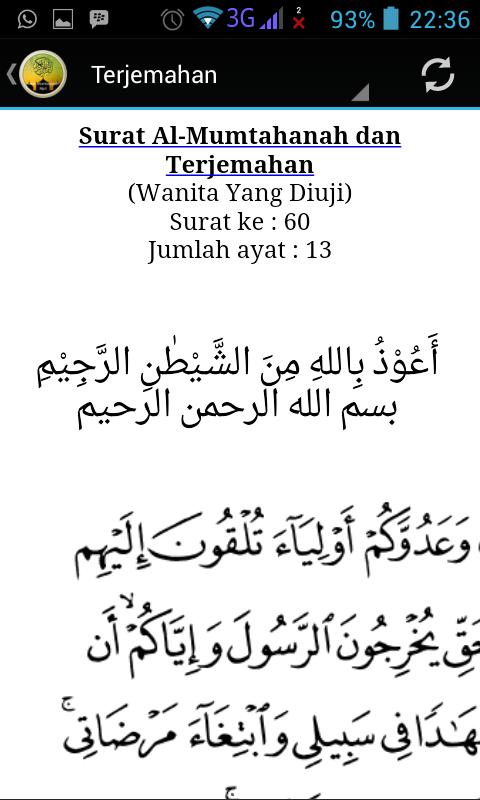 3G 2 93% 22:36
Terjemahan
Surat Al-Mumtahanah dan
Terjemahan
(Wanita Yang Diuji)
Surat ke : 60
Jumlah ayat : 13
أَعُوْذُ بِاللهِ مِنَ الشَّيْطٰنِ الرَّجِيْمِ
بسم الله الرحمن الرحيم
وَعَدُوَّكُمْ أَوْلِيَآءَ تُلْقُونَ إِلَيْهِم
يُخْرِجُونَ ٱلرَّسُولَ وَإِيَّاكُمْ ۙ أَن
فِى سَبِيلِى وَٱبْتِغَآءَ مَرْضَاتِى ۚ